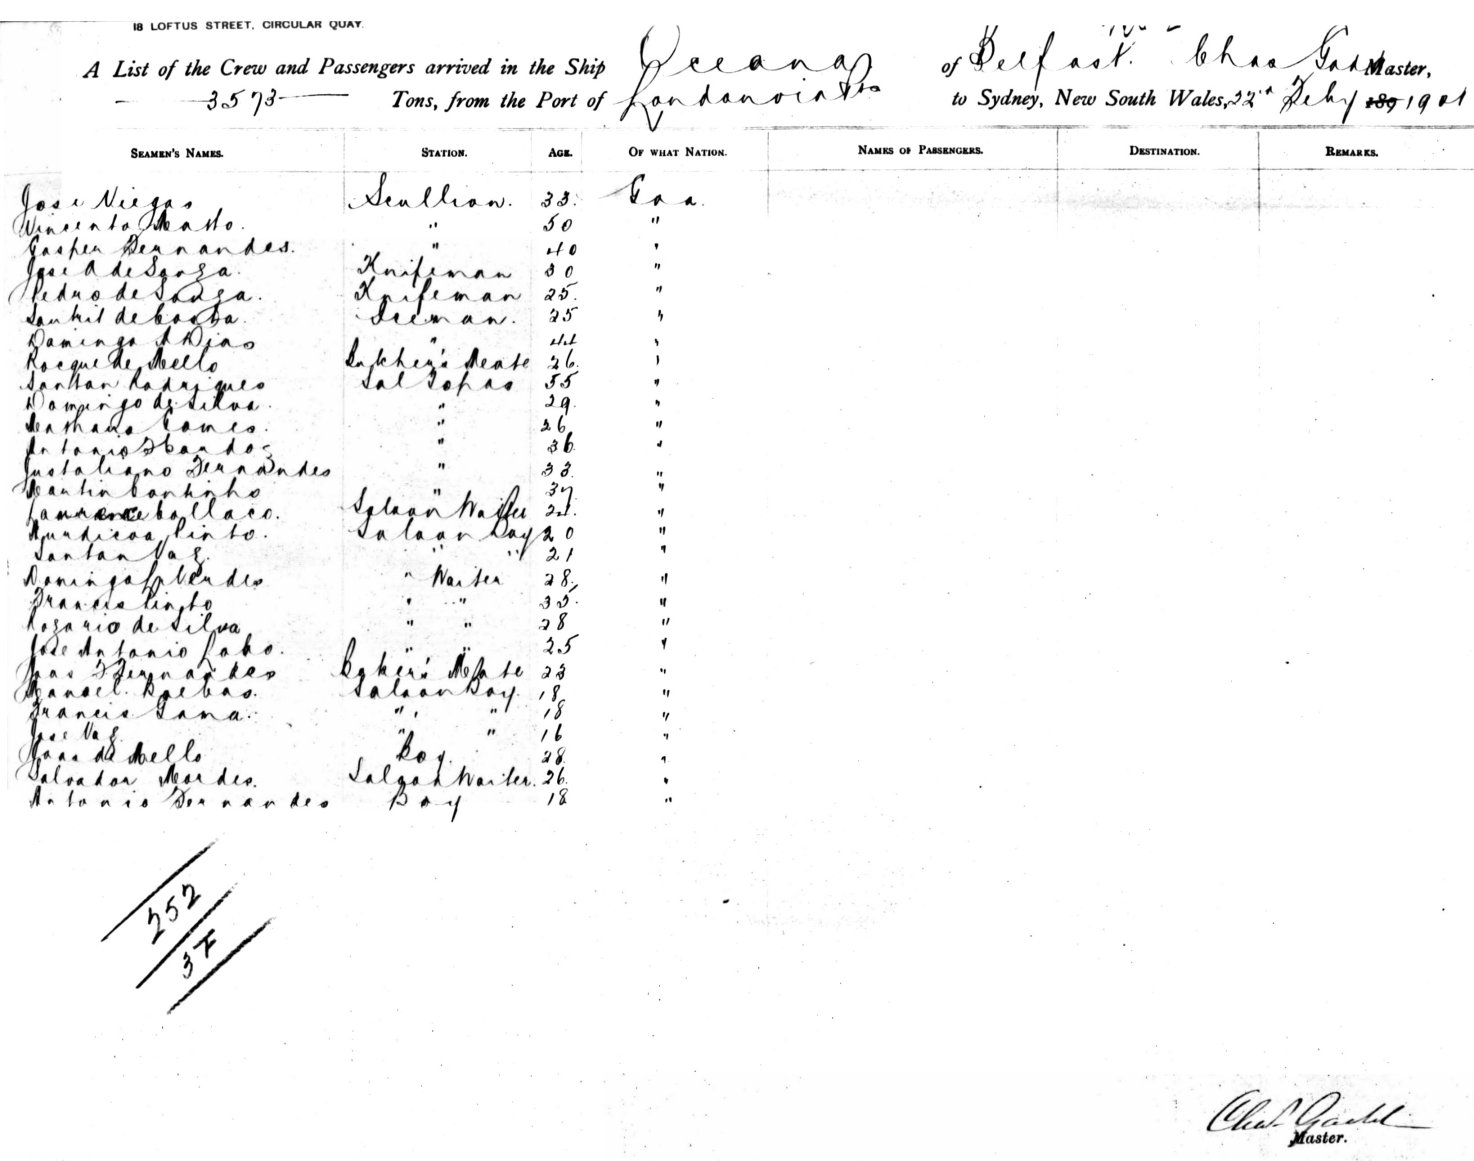 18 LOFTUS STREET, CIRCULAR QUAY.
A List of the Crew and Passengers arrived in the Ship Oceana of Belfast. Chas Gadd Master,
3573 Tons, from the Port of London via Pts to Sydney, New South Wales, 22nd Feby 189 1901
SEAMEN'S NAMES. STATION. AGE. OF WHAT NATION. NAMES OF PASSENGERS. DESTINATION. REMARKS.
Jose Viegas Scullion. 33. Goa.
Vincento " 50 "
Gasper Fernandes. " 40 "
Jose A de Souza. Knifeman 30 "
Pedro de Souza. Knifeman 25. "
de Costa. Iceman. 25 "
Domingo A Dias " 44 "
Rocque de Mello Mate 26. "
Santan Rodrigues Sal Topas 55 "
Domingo de Silva. " 29. "
Gomes. " 26 "
Antonio " 36 "
Fernandes " 33 "
Martin Coutinho " 37 "
Collaco. Saloon Waiter 24. "
Pinto. Saloon Boy 20 "
Santan Vaz. " " 21 "
Domingo Mendes " Waiter 28. "
Francis Pinto " " 35. "
Rozario de Silva " " 28 "
Jose Antonio Lobo. " " 25 "
Joao F Fernandes Baker's Mate 23 "
Manoel Saloon Boy. 18 "
Francis Gama. " " 18 "
Jose Vaz. " " 16 "
Joao de Mello Boy. 28. "
Salvador Saloon Waiter. 26. "
Antonio Fernandes Boy 18 "
252
37
Chas. Gadd
Master.